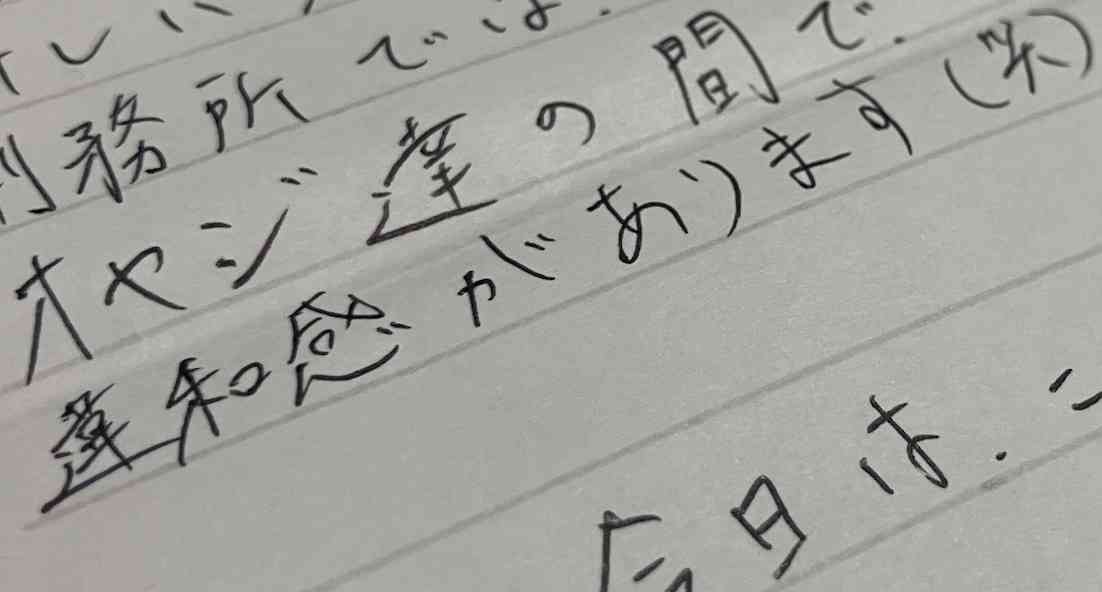 刑務所では.
オヤジ達の間で.
違和感があります(笑)
今日は.こ